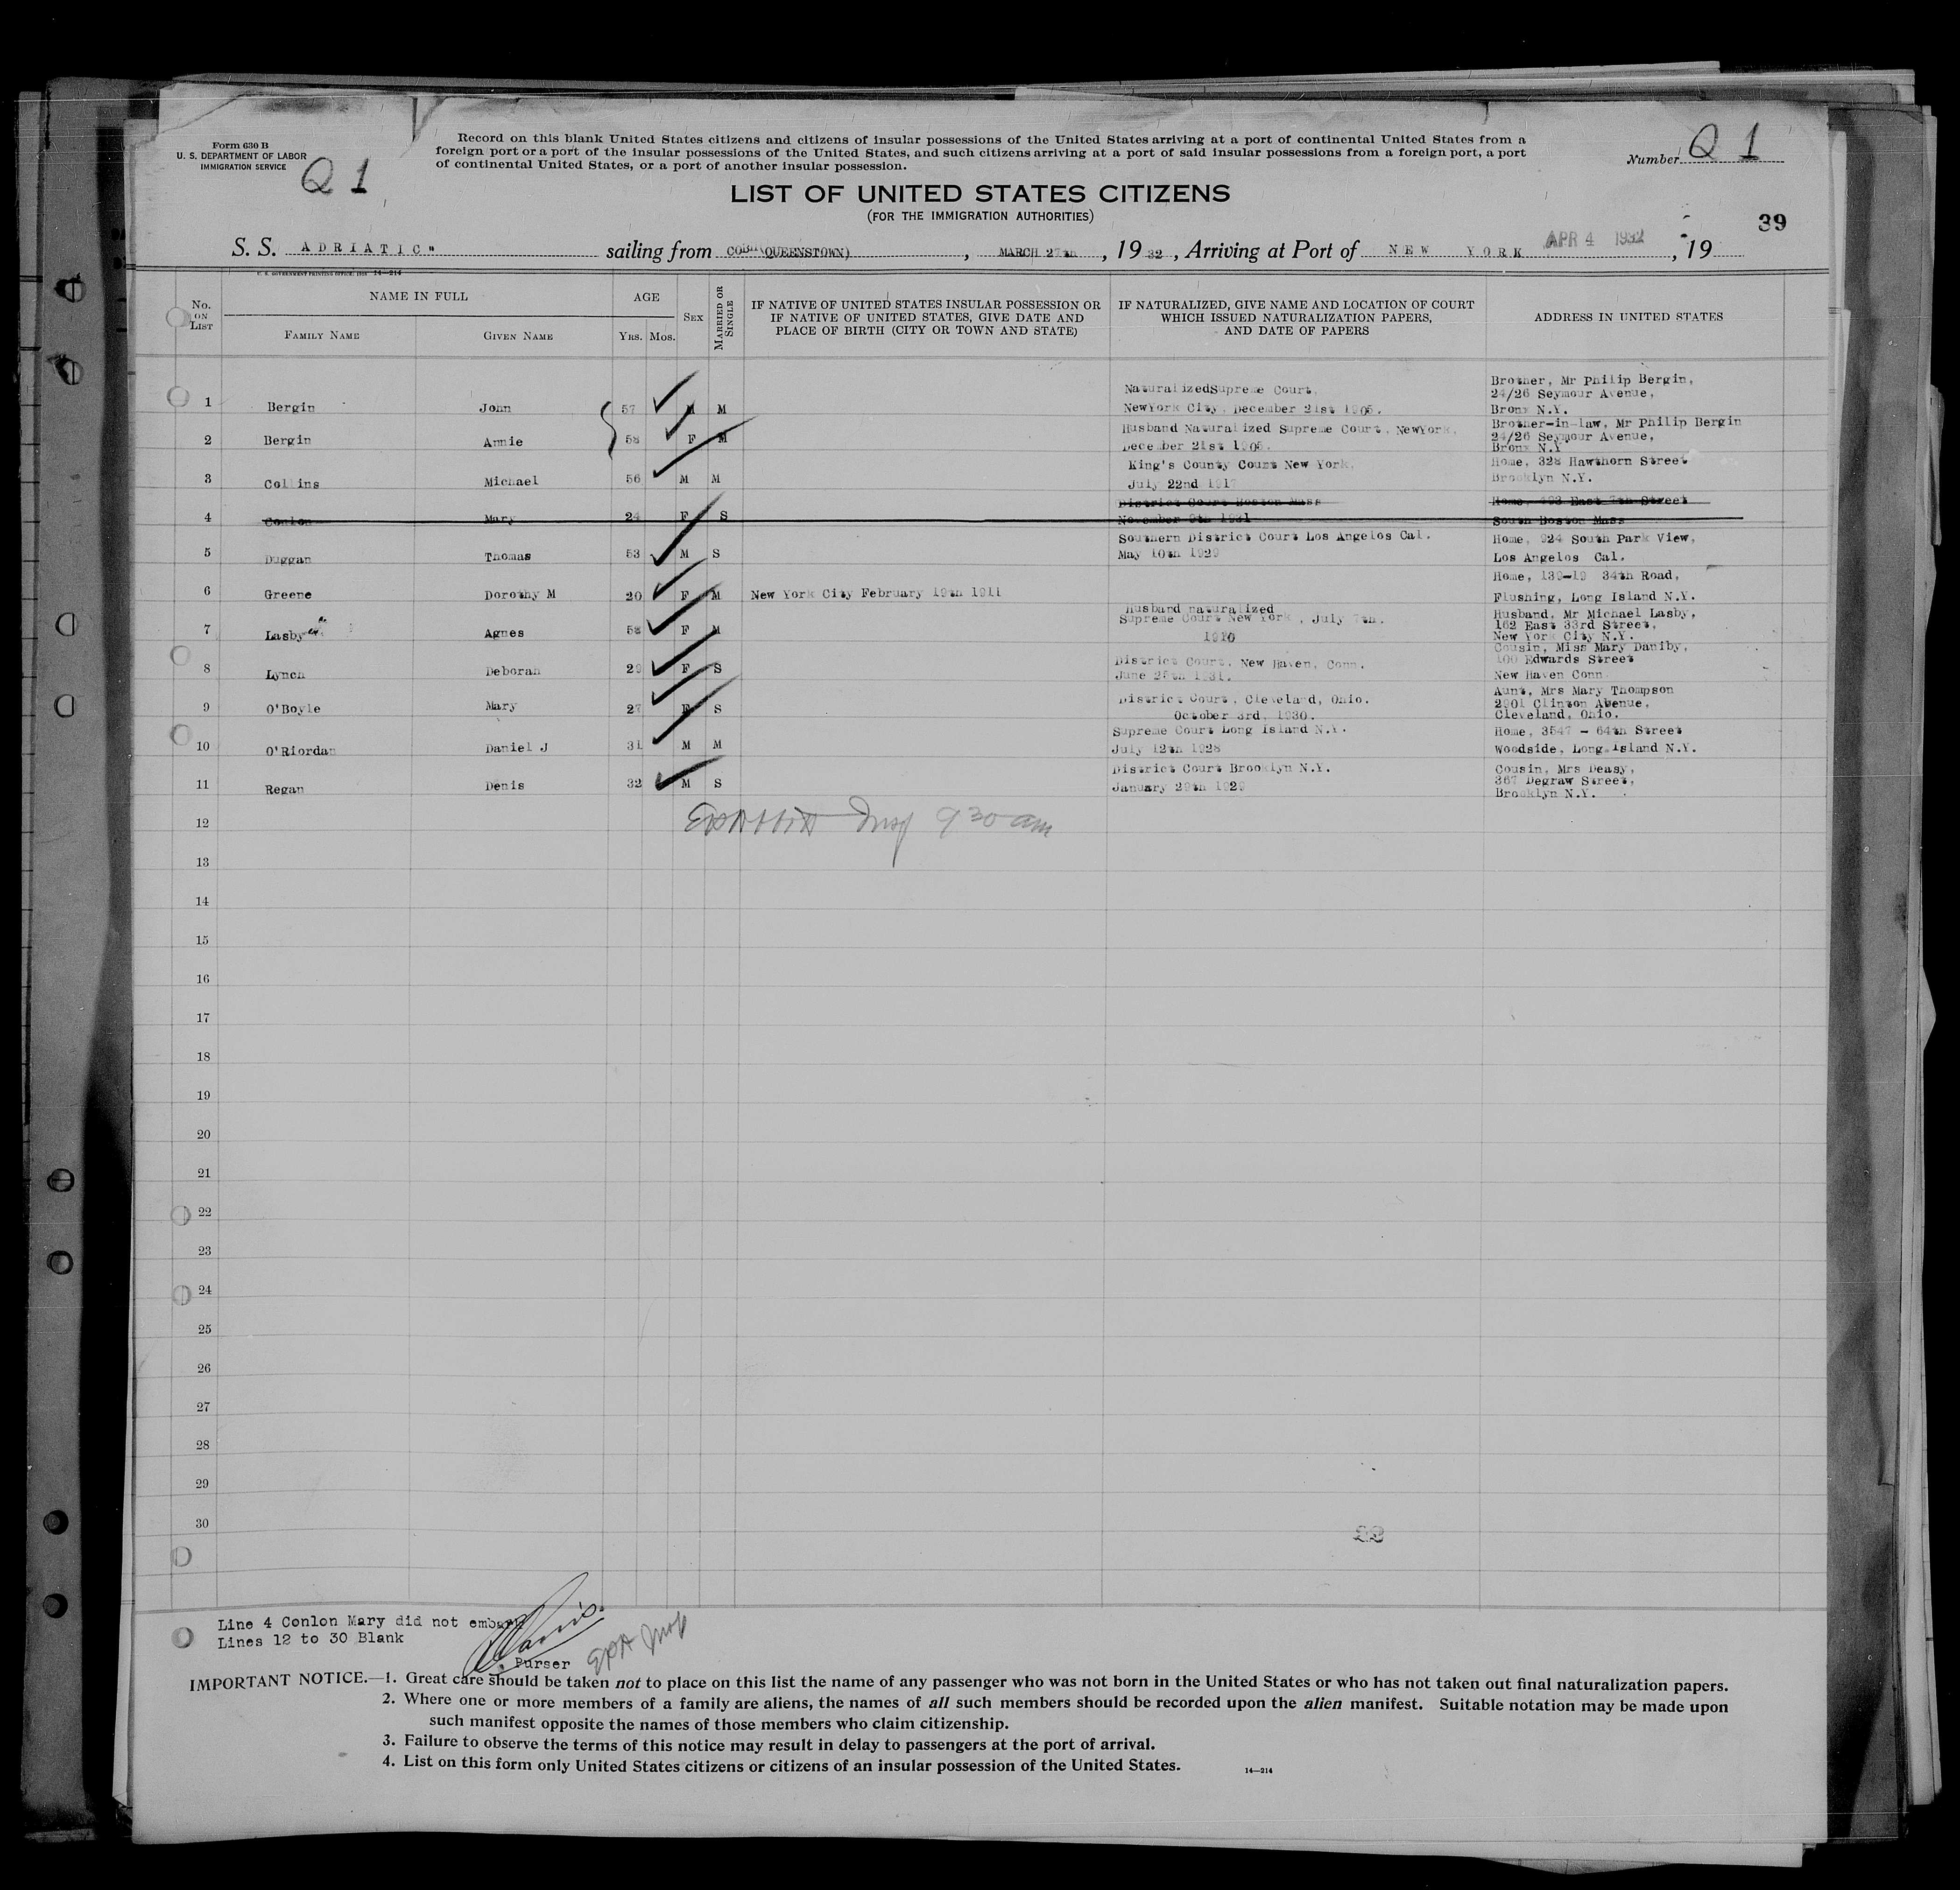 Form 630 B
U. S. DEPARTMENT OF LABOR
IMMIGRATION SERVICE
Q 1
Record on this blank United States citizens and citizens of insular possessions of the United States arriving at a port of continental United States from a
foreign port or a port of the insular possessions of the United States, and such citizens arriving at a port of said insular possessions from a foreign port, a port
of continental United States, or a port of another insular possession.
Number Q 1
LIST OF UNITED STATES CITIZENS
(FOR THE IMMIGRATION AUTHORITIES)
39
S. S. ADRIATIC" sailing from COBH(QUEENSTOWN), MARCH 27th, 1932, Arriving at Port of NEW YORK APR 4 1932, 19
U. S. GOVERNMENT PRINTING OFFICE: 14—214
No. ON LIST
NAME IN FULL
FAMILY NAME
GIVEN NAME
AGE
YRS. MOS.
SEX
MARRIED OR SINGLE
IF NATIVE OF UNITED STATES INSULAR POSSESSION OR
IF NATIVE OF UNITED STATES, GIVE DATE AND
PLACE OF BIRTH (CITY OR TOWN AND STATE)
IF NATURALIZED, GIVE NAME AND LOCATION OF COURT
WHICH ISSUED NATURALIZATION PAPERS,
AND DATE OF PAPERS
ADDRESS IN UNITED STATES
1 Bergin John 57 M M
NaturalizedSupreme Court,
NewYork City, December 21st 1905.
Brother, Mr Philip Bergin,
24/26 Seymour Avenue,
Bronx N.Y.
2 Bergin Annie 58 F M
Husband Naturalized Supreme Court, NewYork,
December 21st 1905.
Brother-in-law, Mr Philip Bergin
24/26 Seymour Avenue,
Bronx N.Y
3 Collins Michael 56 M M
King's County Court New York,
July 22nd 1917
Home, 328 Hawthorn Street
Brooklyn N.Y.
4 Conlon Mary 24 F S
District Court Boston Mass
November 9th 1931
Home, 493 East 7th Street
South Boston Mass
5 Duggan Thomas 53 M S
Southern District Court Los Angelos Cal.
May 10th 1929
Home, 924 South Park View,
Los Angelos Cal.
6 Greene Dorothy M 20 F M New York City February 19th 1911
Home, 139-19 34th Road,
Flushing, Long Island N.Y.
7 Lasby Agnes 58 F M
Husband naturalized
Supreme Court New York, July 7th.
1910
Husband, Mr Michael Lasby,
162 East 33rd Street,
New York City N.Y.
8 Lynch Deborah 29 F S
District Court, New Haven, Conn.
June 25th 1931.
Cousin, Miss Mary Daniby,
100 Edwards Street
New Haven Conn
9 O'Boyle Mary 27 F S
District Court, Cleveland, Ohio.
October 3rd, 1930.
Aunt, Mrs Mary Thompson
2901 Clinton Abenue,
Cleveland, Ohio.
10 O'Riordan Daniel J 31 M M
Supreme Court Long Island N.Y.
July 12th 1928
Home, 3547 - 64th Street
Woodside, Long Island N.Y.
11 Regan Denis 32 M S
District Court Brooklyn N.Y.
January 29th 1929
Cousin, Mrs Deasy,
367 Degraw Street,
Brooklyn N.Y.
12
Insp 9 30 am
13
14
15
16
17
18
19
20
21
22
23
24
25
26
27
28
29
30
Line 4 Conlon Mary did not embark
Lines 12 to 30 Blank
Purser
Insp
IMPORTANT NOTICE.—1. Great care should be taken not to place on this list the name of any passenger who was not born in the United States or who has not taken out final naturalization papers.
2. Where one or more members of a family are aliens, the names of all such members should be recorded upon the alien manifest. Suitable notation may be made upon
such manifest opposite the names of those members who claim citizenship.
3. Failure to observe the terms of this notice may result in delay to passengers at the port of arrival.
4. List on this form only United States citizens or citizens of an insular possession of the United States.
14—214